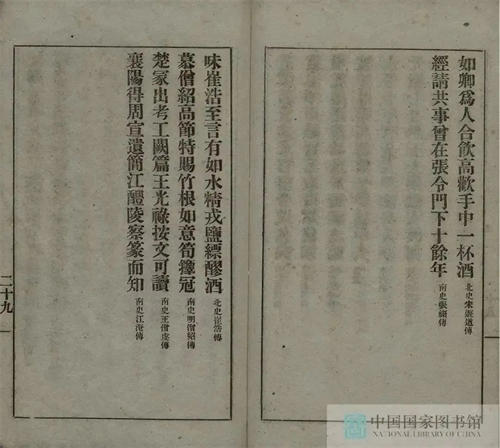 如卿爲人合飲高歡手中一杯酒 北史宋遊道傳
經請共事曾在張令門下十餘年 南史張緬傳
味崔浩至言有如水精戎鹽縹醪酒 北史崔浩傳
慕僧紹高節特賜竹根如意筍籜冠 南史明僧紹傳
楚冢出考工闕篇王光祿按文可讀 南史王僧虔傳
襄陽得周宣遺簡江醴陵察篆而知 南史江淹傳
二十九
中国国家图书馆
NATIONAL LIBRARY OF CHINA